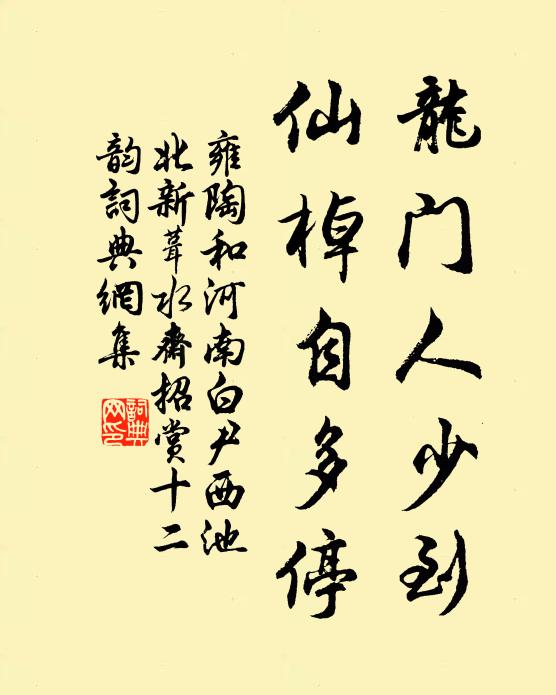 龍门人少到
仙棹自多停
雍陶和河南白尹西池
北新葺水齋招赏十二
韵詞典網集
詞典網印